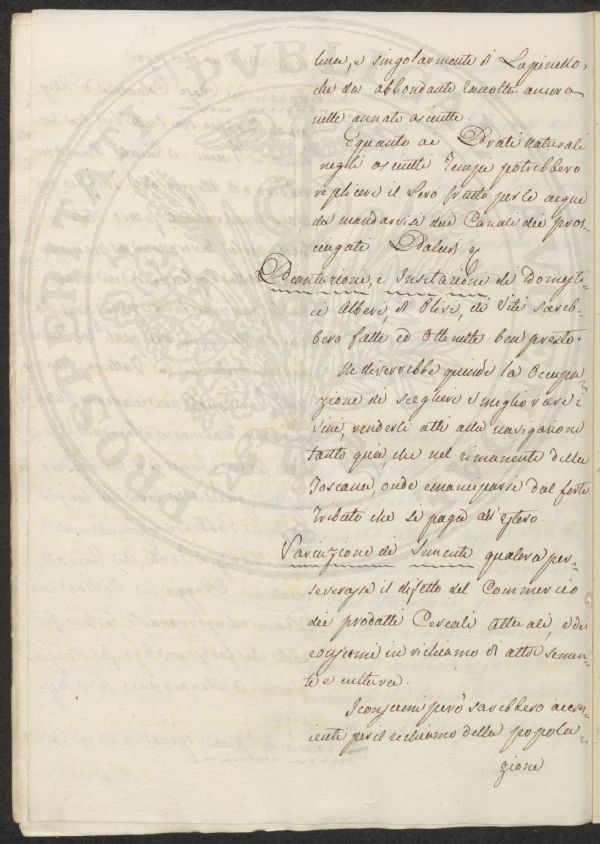 line, e singolarmente di Lupinello,
che da abbondante raccolta ancora
nelle annate asciutte.
E quanto ai Prati naturali
negli asciutti tempi potrebbero
replicare il loro frutto per le acque
da mandarcisi dai Canali dei pros-
ciugati Paduli
Piantazione, e Insitazione di Domesti-
ci Alberi, di Olivi, di Viti sareb-
bero fatte ed Ottenute ben presto.
Ne diverrebbe quindi la Occupa-
zione di scegliere e migliorare i
vini, renderli atti alla navigazione
tanto quà, che nel rimanente della
Toscana, onde emanciparsi dal forte
tributo che si paga all'Estero.
Variazione di Semente qualora per-
severasse il difetto del Commercio
dei prodotti Cereali attuali, e dei
consumi in richiamo di altre semen-
te e culture.
I consumi però sarebbero accres-
centi per il richiamo della popola-
zione
PROSPERITATI PVBLICAE